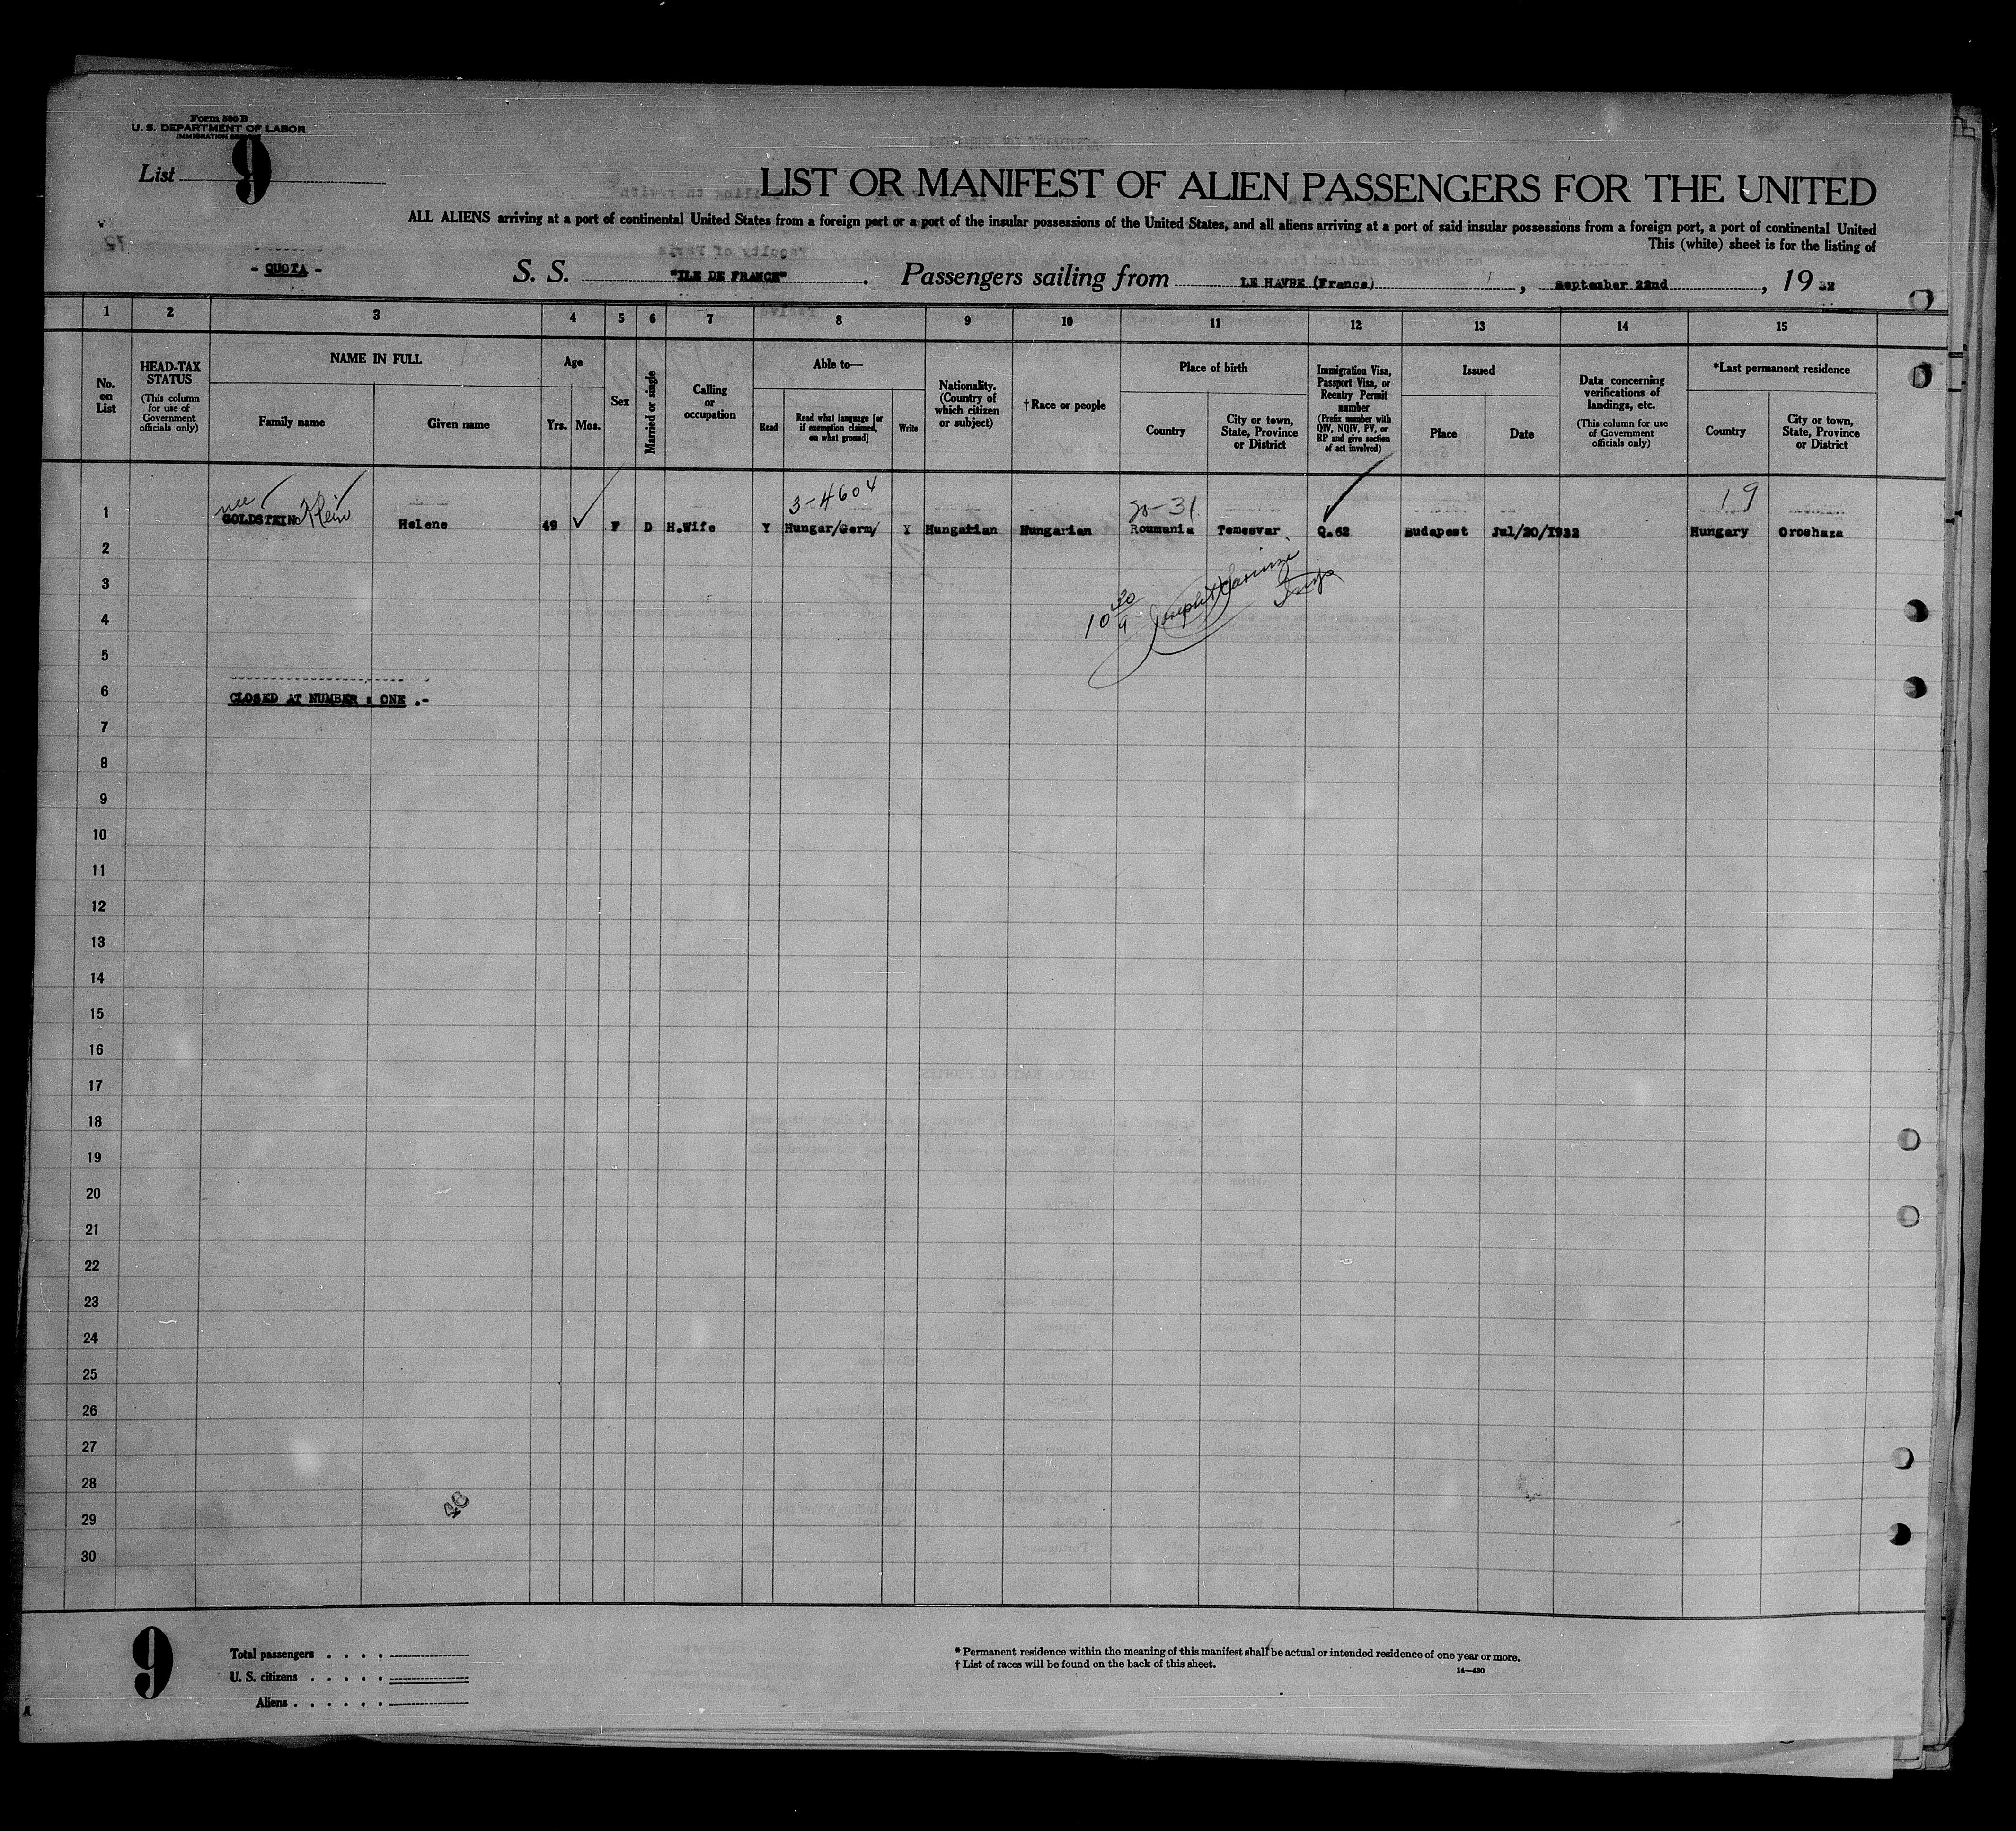 Form 500 B
U. S. DEPARTMENT OF LABOR
IMMIGRATION SERVICE
List 9
LIST OR MANIFEST OF ALIEN PASSENGERS FOR THE UNITED
ALL ALIENS arriving at a port of continental United States from a foreign port or a port of the insular possessions of the United States, and all aliens arriving at a port of said insular possessions from a foreign port, a port of continental United
This (white) sheet is for the listing of
- QUOTA - S. S. "ILE DE FRANCE". Passengers sailing from LE HAVRE (France), September 22nd, 1932
1 2 3 4 5 6 7 8 9 10 11 12 13 14 15
No. on List
HEAD-TAX STATUS
(This column for use of Government officials only)
NAME IN FULL
Family name
Given name
Age
Yrs. Mos.
Sex
Married or single
Calling or occupation
Able to—
Read
Read what language [or if exemption claimed, on what ground]
Write
Nationality. (Country of which citizen or subject)
†Race or people
Place of birth
Country
City or town, State, Province or District
Immigration Visa, Passport Visa, or Reentry Permit number
(Prefix number with QIV, NQIV, PV, or RP and give section of act involved)
Issued
Place
Date
Data concerning verifications of landings, etc.
(This column for use of Government officials only)
*Last permanent residence
Country
City or town, State, Province or District
nee Klein 3-4604 20-31 19
1 GOLDSTEIN Helene 49 F D H.Wife Y Hungar/Germ/ Y Hungarian Hungarian Roumania Temesvar Q.62 Budapest Jul/20/1932 Hungary Oroshaza
2
3
4
5
6 CLOSED AT NUMBER : ONE .-
7
8
9
10
11
12
13
14
15
16
17
18
19
20
21
22
23
24
25
26
27
28
29
30
9
Total passengers . . . .
U. S. citizens . . . . .
Aliens . . . . . .
* Permanent residence within the meaning of this manifest shall be actual or intended residence of one year or more.
† List of races will be found on the back of this sheet.
14—430